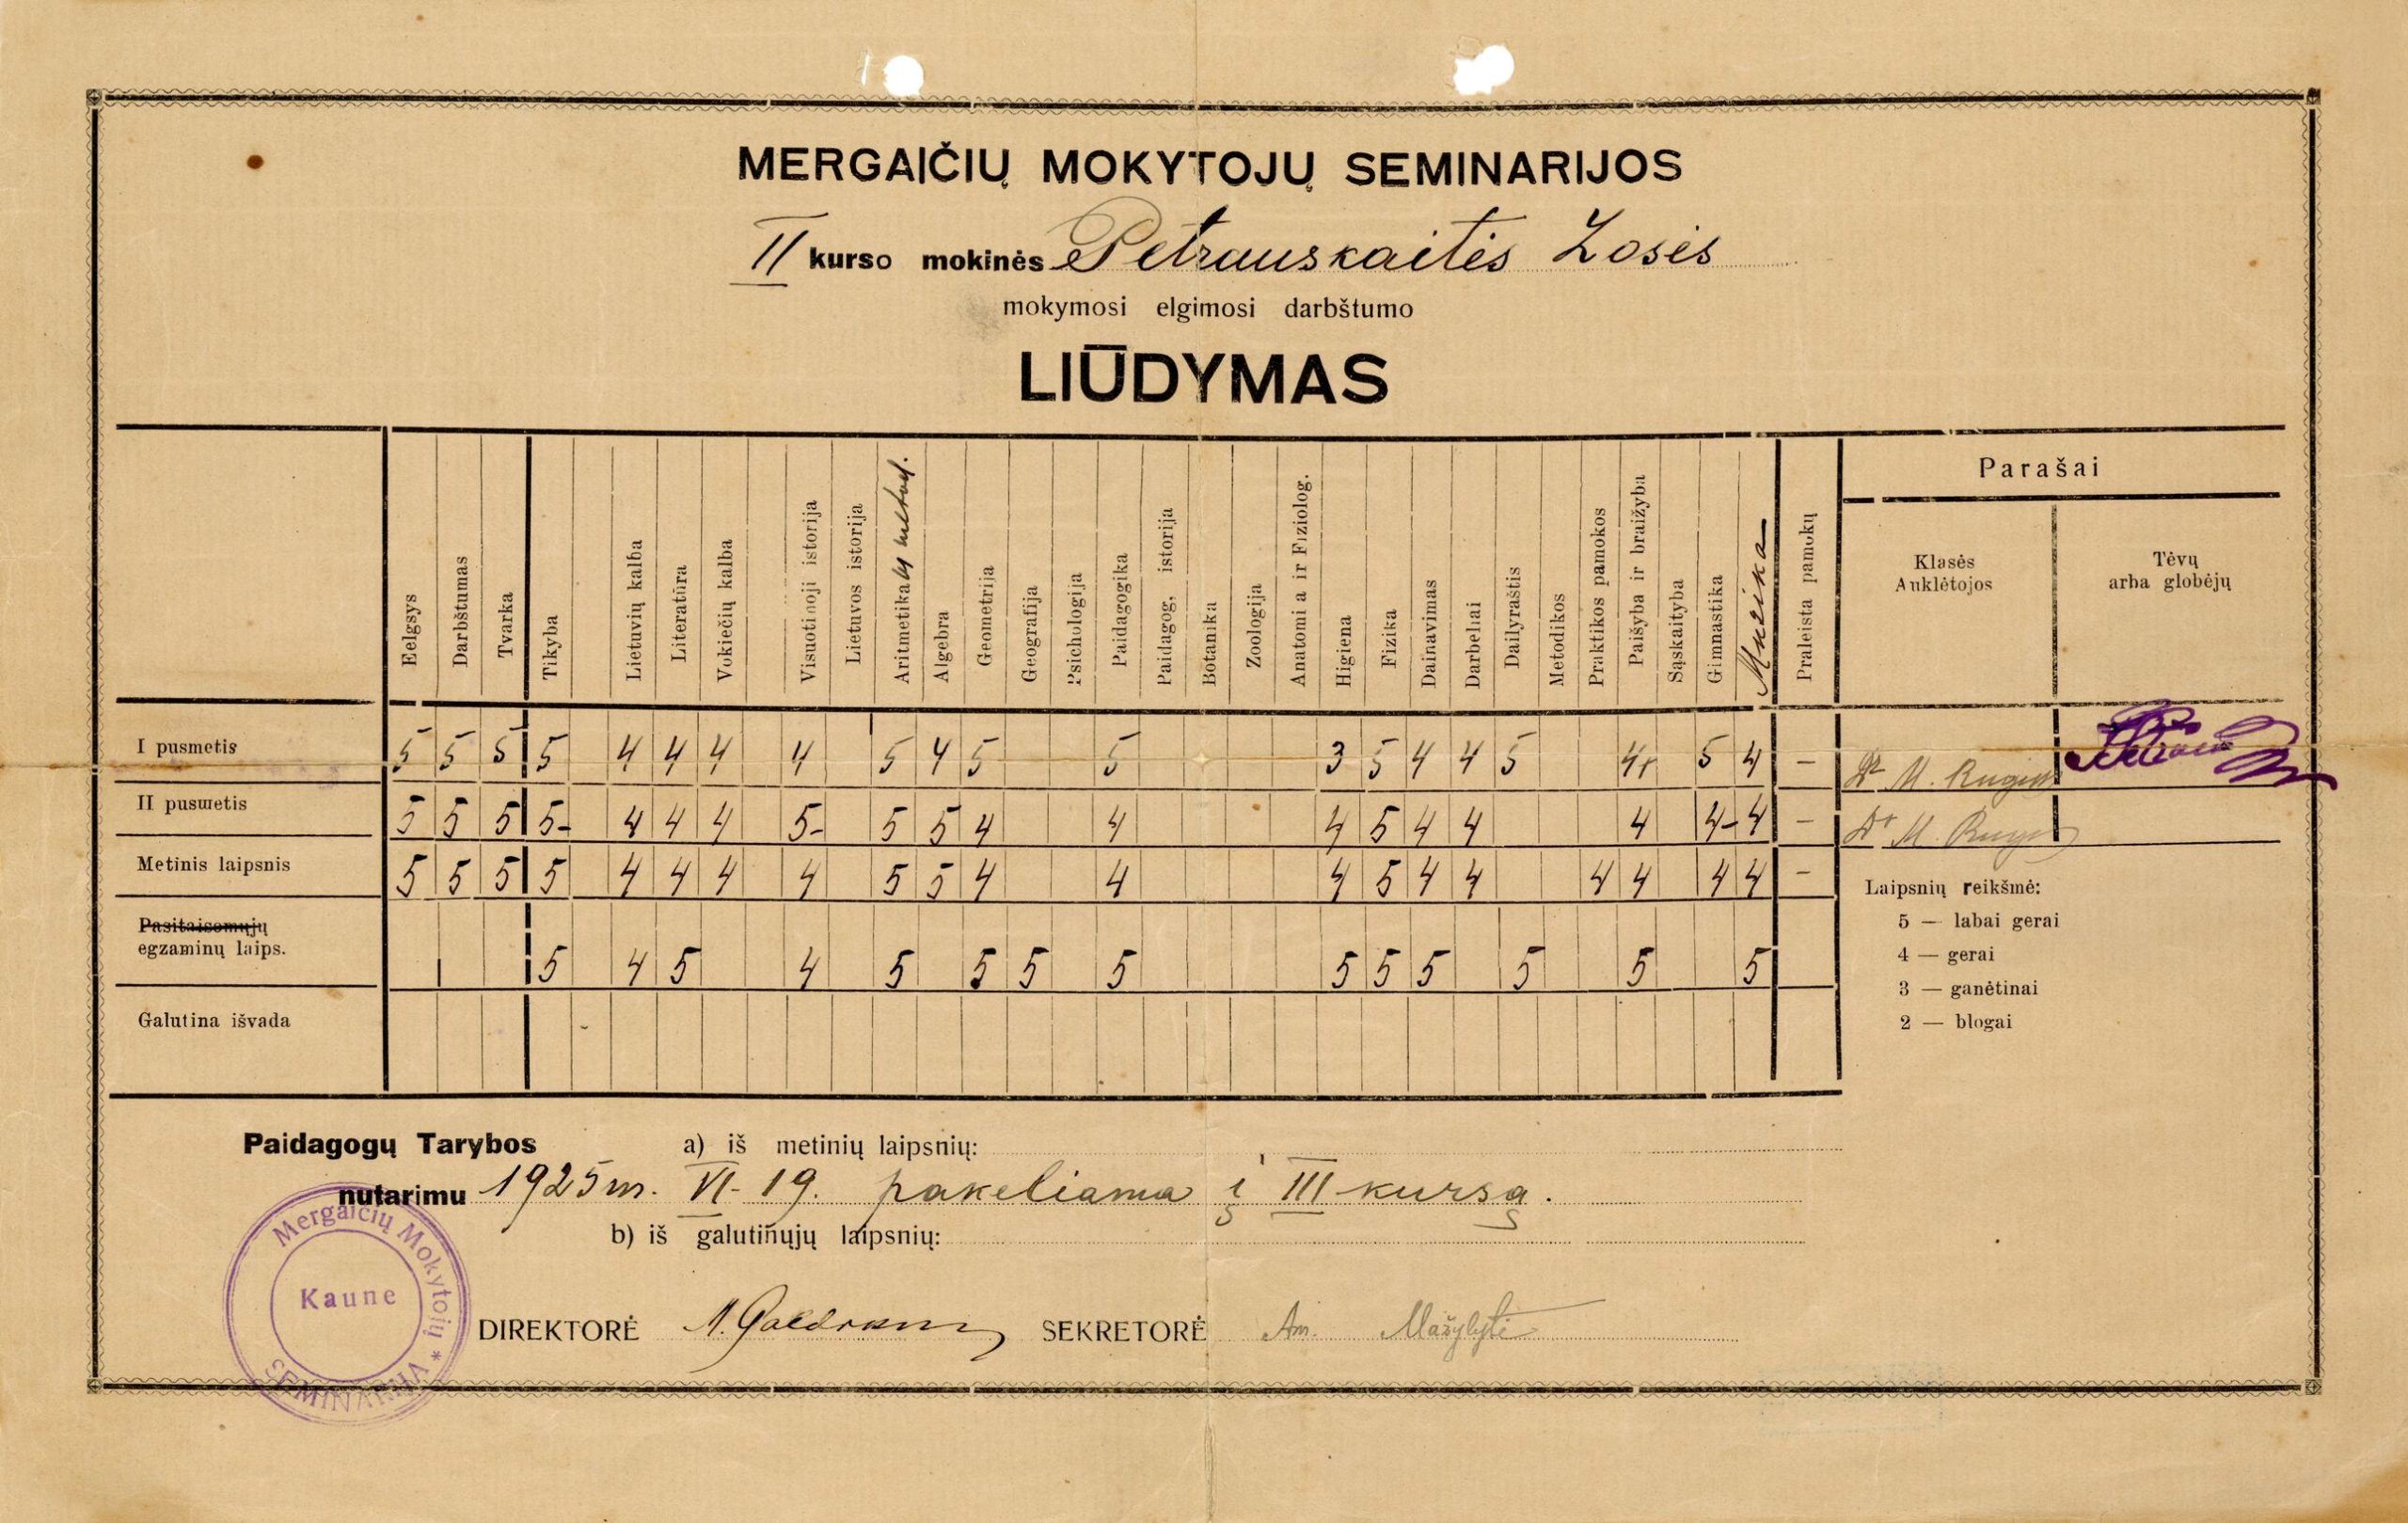 MERGAIČIŲ MOKYTOJŲ SEMINARIJOS
II kurso mokinės Petrauskaitės Zosės
mokymosi elgimosi darbštumo
LIŪDYMAS
Eelgsys
Darbštumas
Tvarka
Tikyba
Lietuvių kalba
Literatūra
Vokiečių kalba
Visuotinoji istorija
Lietuvos istorija
Aritmetika
Algebra
Geometrija
Geografija
Psichologija
Paidagogika
Paidagog, istorija
Botanika
Zoologija
Anatomia ir Fiziolog.
Higiena
Fizika
Dainavimas
Darbeliai
Dailyraštis
Metodikos
Praktikos pamokos
Paišyba ir braižyba
Sąskaityba
Gimnastika
Muzika
Praleista pamokų
Parašai
Klasės
Auklėtojos
Tėvų
arba globėjų
I pusmetis 5 5 5 5 4 4 4 4 5 4 5 5 3 5 4 4 5 4+ 5 4 –
II pusmetis 5 5 5 5- 4 4 4 5- 5 5 4 4 4 5 4 4 4 4- 4 – Dr M.
Metinis laipsnis 5 5 5 5 4 4 4 4 5 5 4 4 4 5 4 4 4 4 4 4 –
Pasitaisomųjų
egzaminų laips. 5 4 5 4 5 5 5 5 5 5 5 5 5 5
Galutina išvada
Laipsnių reikšmė:
5 — labai gerai
4 — gerai
3 — ganėtinai
2 — blogai
Paidagogų Tarybos a) iš metinių laipsnių:
nutarimu 1925 m. VI-19. pakeliama į III kursą.
b) iš galutinųjų laipsnių:
Mergaičių Mokytojų * SEMINARIJA
Kaune
DIREKTORĖ SEKRETORĖ Mašylytė